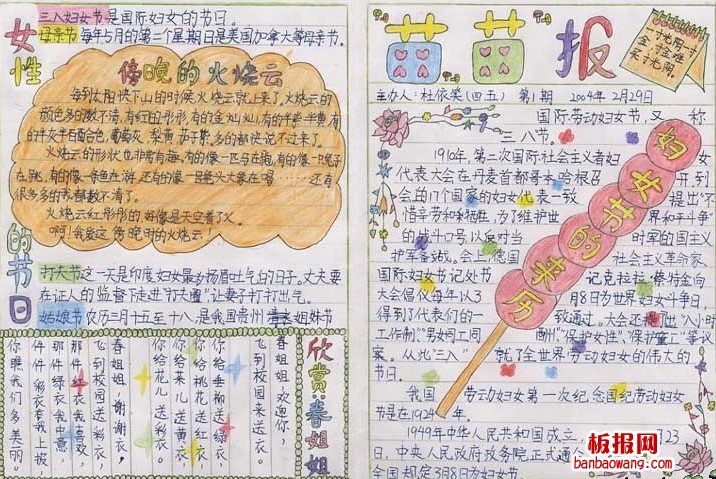 女性的节日
三八妇女节是国际妇女的节日。
母亲节每年5月的第二个星期日是美国加拿大等母亲节。
傍晚的火烧云
每到太阳快下山的时候火烧云就上来了,火烧云的
颜色多的数不清,有红的彤彤有的金灿灿,有的半紫半黄,有
的半灰半百合色,葡萄灰、梨黄、茄子紫,多的都说不过来了。
火烧云的形状也非常有趣,有的像一匹马在跑,有的像一只兔子
在跳,有的像一条鱼在游,还有的像
还有
很多多的我都数不清了。
火烧云红彤彤的好像是天空着了火。
啊!我爱这傍晚时的火烧云!
打夫节这一天是印度妇女最为扬眉吐气的日子。丈夫要
在证人的监督下走进"打夫圈"让妻子打打出气。
姑娘节农历三月十五至十八,是我国贵州
姐妹节
欣赏:春姐姐
春姐姐,欢迎你,
飞到校园来送衣,
你给垂柳送绿衣,
你给桃花送红衣,
你给菜儿送黄衣,
你给花儿送彩衣。
春姐姐,谢谢衣,
飞到校园送彩衣,
那件红衣我喜欢,
那件绿衣我中意,
件件彩衣套我上披
你瞧我们多美丽。
苗苗报
一寸光阴一寸
金,寸金难
买寸光阴。
主办人:杜依笑(四五) 第1期 2004年2月29日
妇女节的来历
国际劳动妇女节,又称
三八节。
1910年,第二次国际社会主义者妇女
代表大会在丹麦首都哥本哈根召开到
会的17个国家的妇女代表一致提出"不
悟辛劳和牺牲,为了维护世界和平斗争"
的战斗口号,以反对当时军的国主义
扩军备战。会上,德国社会主义革命家
国际妇女节记处书记克拉拉·蔡特金向
大会倡仪每年以3月8日为世界妇女斗争日
得到了代表们的一致通过。大会还提出"八小时
工作制""男女同工同酬""保护女性""保护童工"等议
案。从此"三八"就了全世界劳动妇女的伟大的
节日。
我国劳动妇女第一次纪念国纪劳动妇女
节是在1924年。
1949年中华人民共和国成立
23
日,中央人民政府政务院正式通
全国规定3月8日为妇女节。
板报网
banbaowang.com